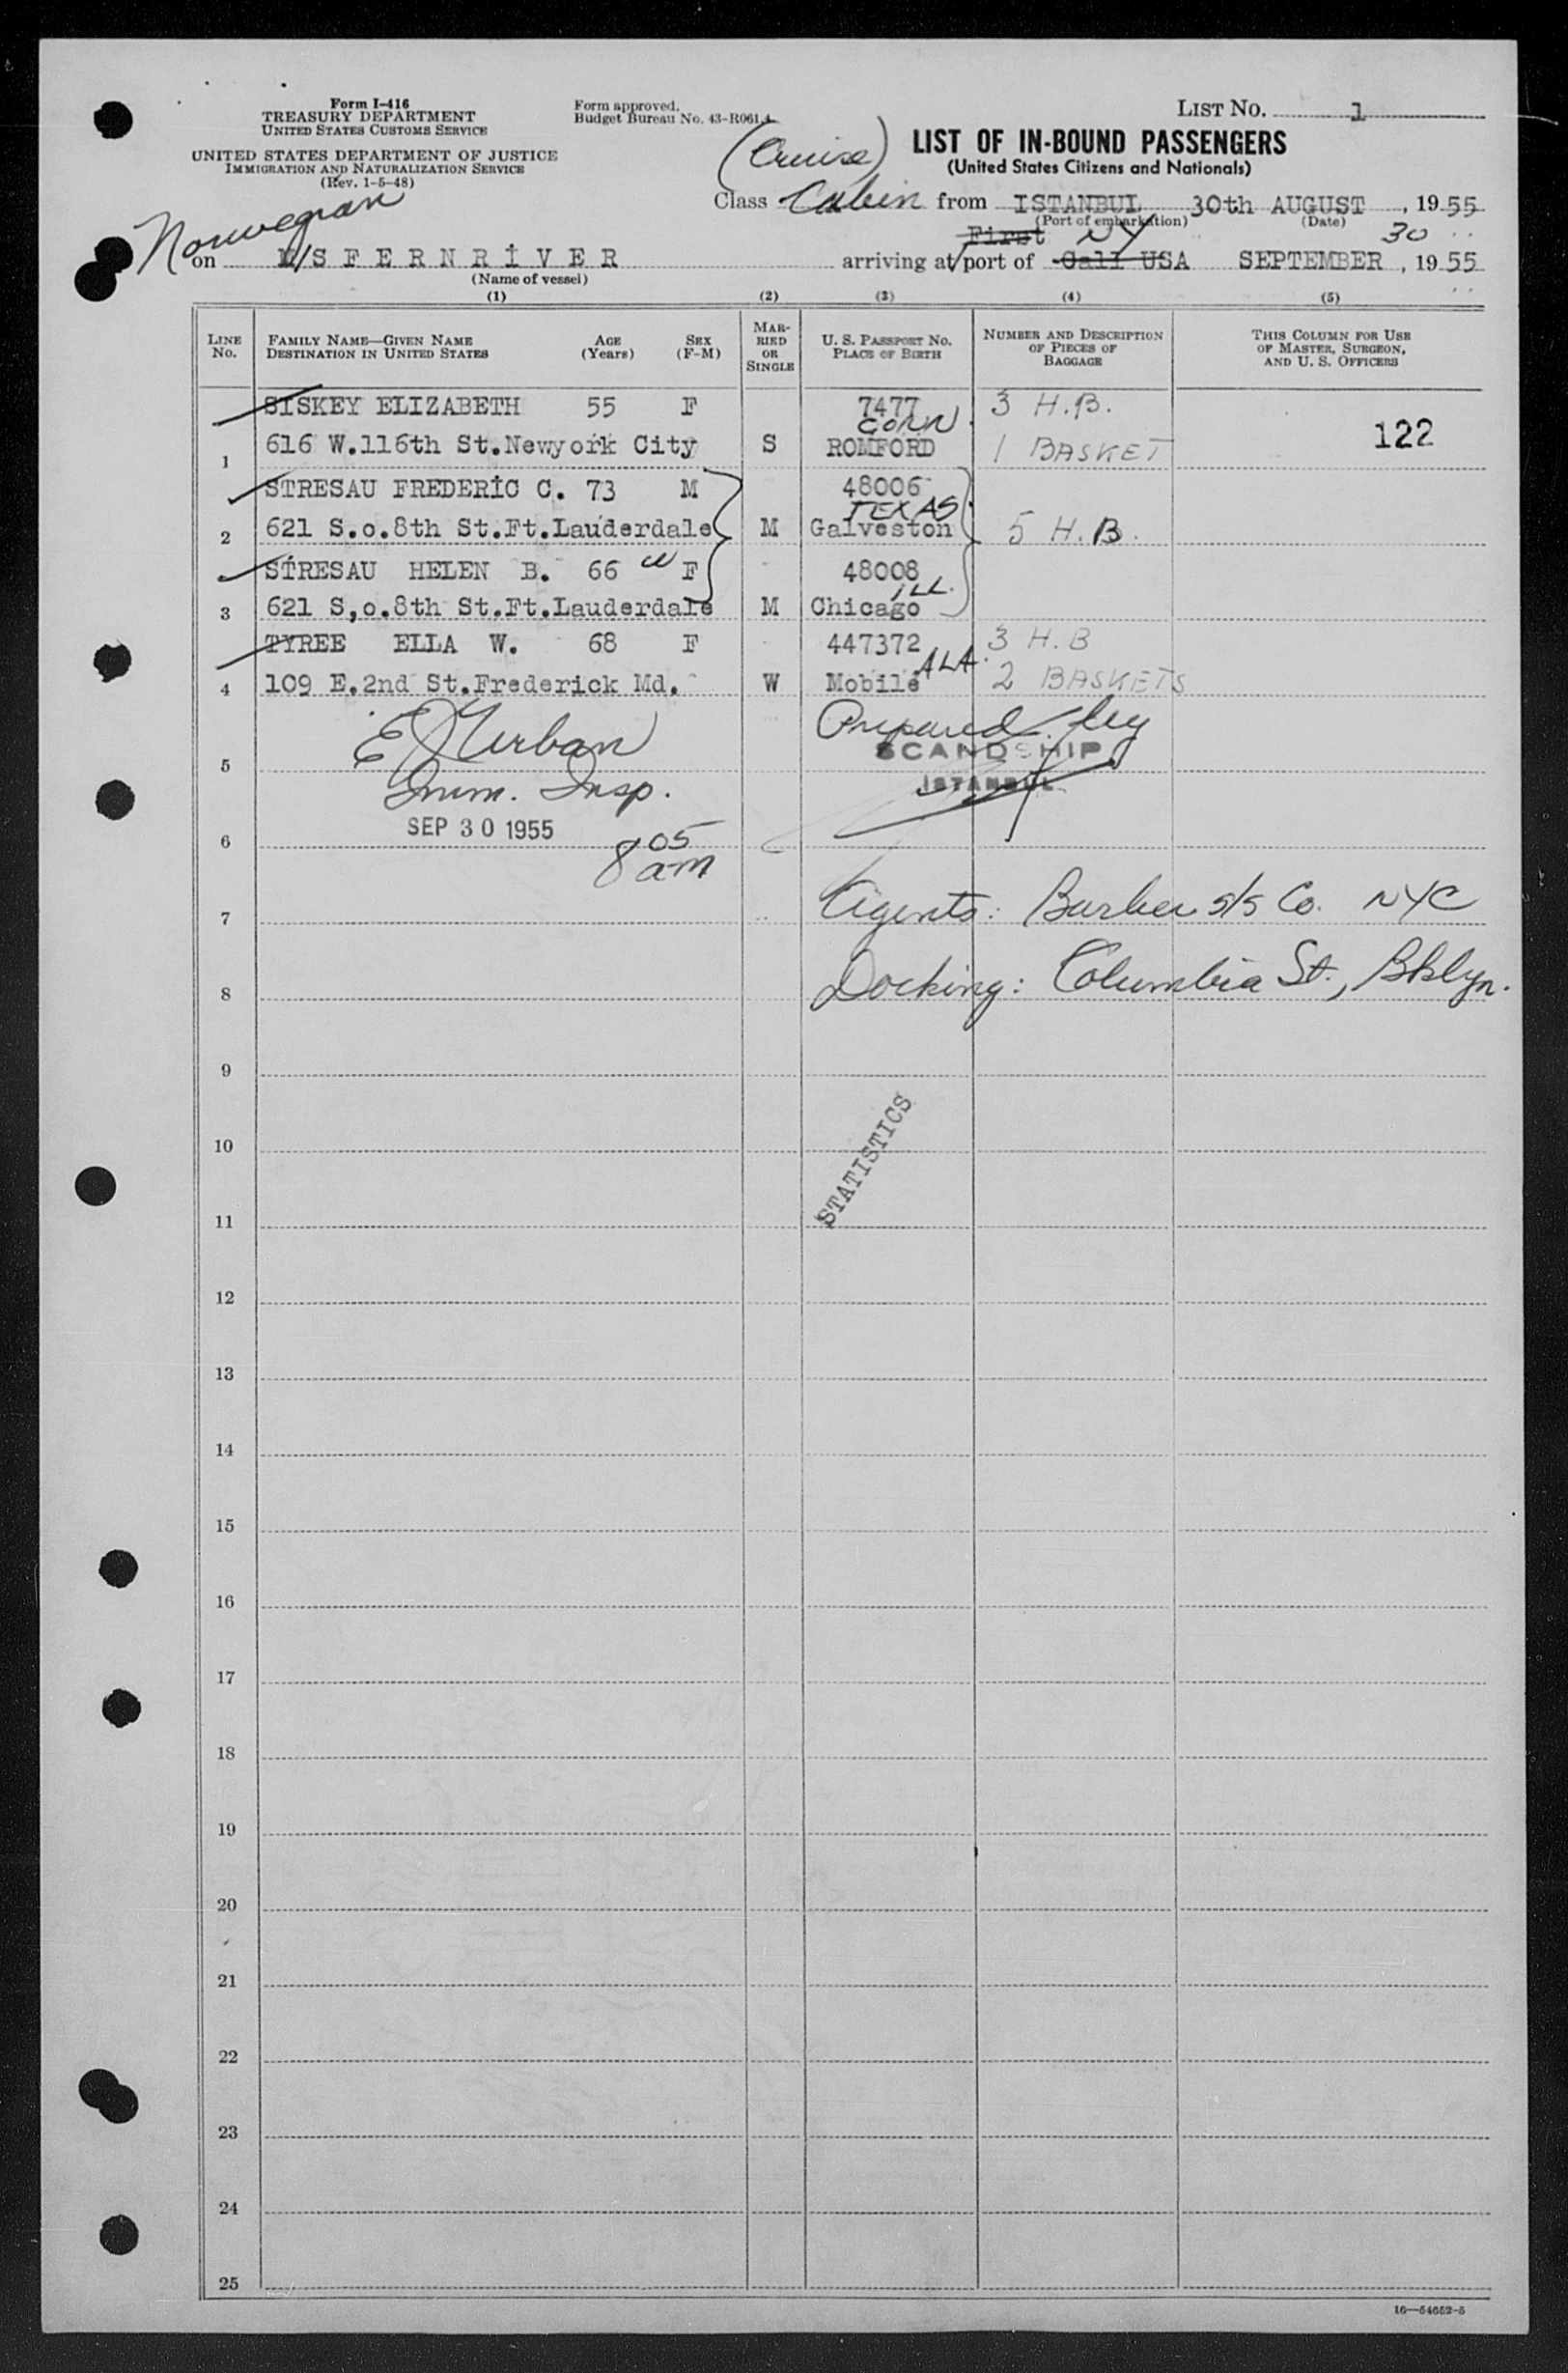 Form I-416
TREASURY DEPARTMENT
UNITED STATES CUSTOMS SERVICE
UNITED STATES DEPARTMENT OF JUSTICE
IMMIGRATION AND NATURALIZATION SERVICE
(Rev. 1-5-48)
Form approved.
Budget Bureau No. 43-R061.4.
LIST NO. 1
(Cruise) LIST OF IN-BOUND PASSENGERS
(United States Citizens and Nationals)
Class Cabin from ISTANBUL 30th AUGUST, 1955
(Port of embarkation) (Date)
Norwegian
First NY 30
on M/S FERNRİVER arriving at port of Call USA SEPTEMBER, 1955
(Name of vessel)
(1) (2) (3) (4) (5)
LINE NO. FAMILY NAME—GIVEN NAME DESTINATION IN UNITED STATES AGE (Years) SEX (F-M) MARRIED OR SINGLE U. S. PASSPORT NO. PLACE OF BIRTH NUMBER AND DESCRIPTION OF PIECES OF BAGGAGE THIS COLUMN FOR USE OF MASTER, SURGEON, AND U. S. OFFICERS
SISKEY ELIZABETH 55 F 7477 3 H.B.
CONN.
1 616 W.116th St.Newyork City S ROMFORD 1 BASKET 122
STRESAU FREDERİC C. 73 M 48006
TEXAS
2 621 S.o.8th St.Ft.Lauderdale M Galveston 5 H.B.
STRESAU HELEN B. 66 F 48008
ILL.
3 621 S,o.8th St.Ft.Lauderdale M Chicago
TYREE ELLA W. 68 F 447372 3 H.B
ALA.
4 109 E.2nd St.Frederick Md. W Mobile 2 BASKETS
E J Urban Prepared by
SCANDSHIP
5
Imm. Insp. ISTANBUL
SEP 30 1955
6
8 05 am
7 Agents: Barber S/S Co. NYC
8 Docking: Columbia St., Bklyn.
9
STATISTICS
10
11
12
13
14
15
16
17
18
19
20
21
22
23
24
25
16—54652-5